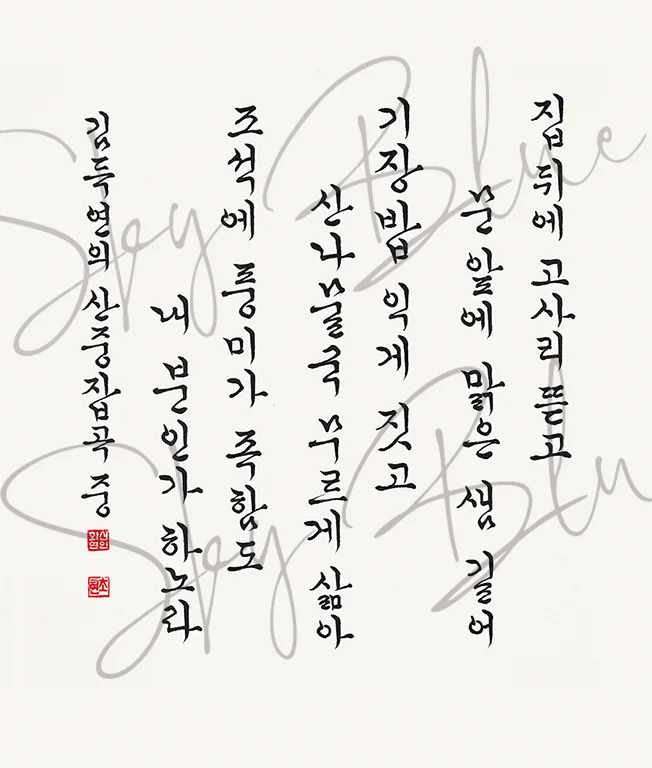 집 뒤에 고사리 뜯고
문 앞에 맑은 샘 길어
기장밥 익게 짓고
산나물국 무르게 삶아
조석에 풍미가 족함도
내 분인가 하노라
김득연의 산중잡곡 중
Sky Blue
Sky Blu